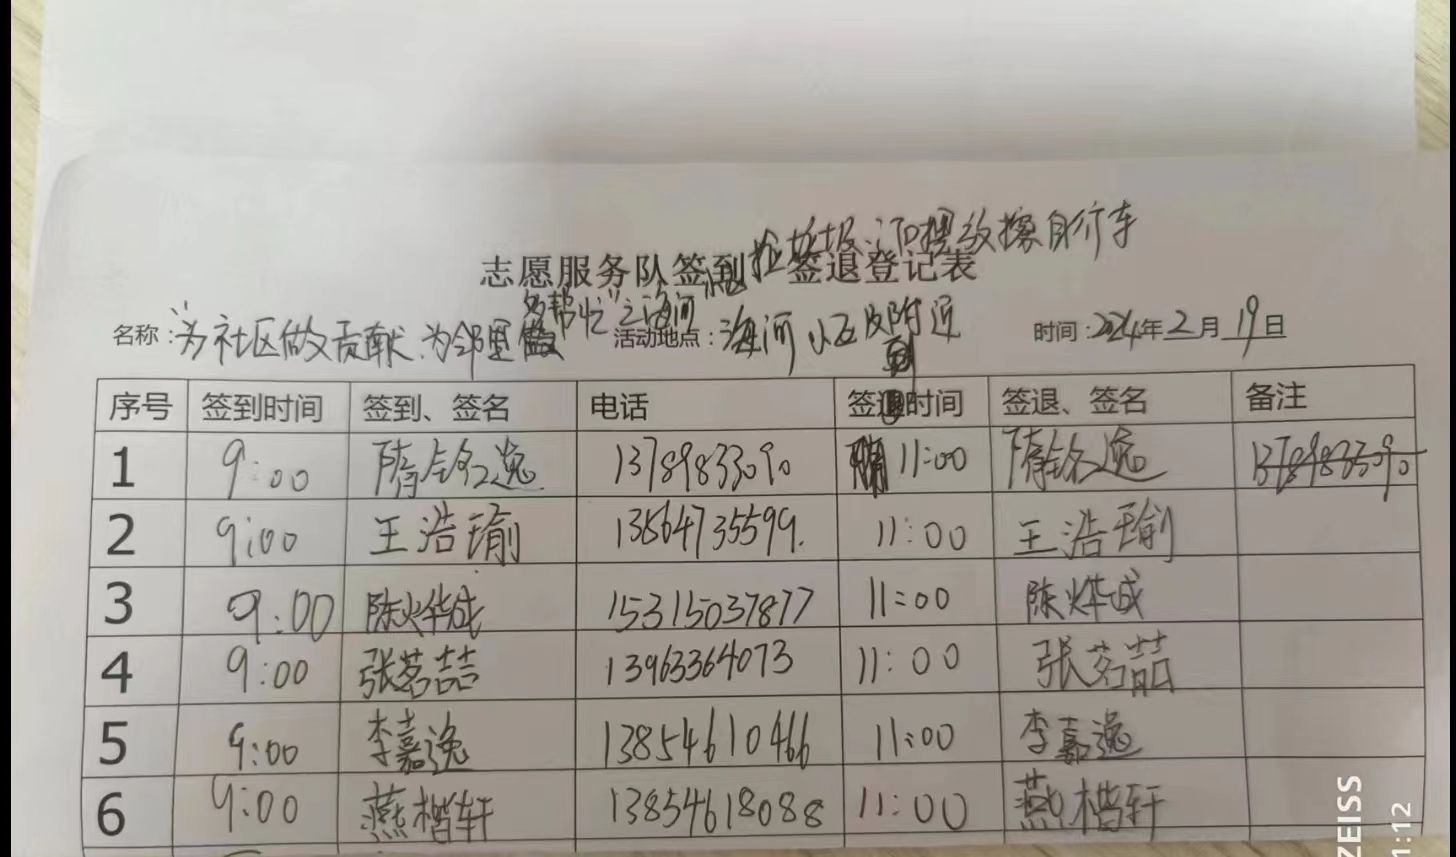 捡垃圾 摆放擦自行车
志愿服务队签到 签退登记表
多帮忙"之海河
名称:"为社区做贡献,为邻里 活动地点:海河小区及附近 时间:2024年2月19日
序号 签到时间 签到、签名 电话 签退时间 签退、签名 备注
1 9:00 隋铭逸 13789833090 11:00 隋铭逸 13789833090
2 9:00 王浩瑜 13864735599. 11:00 王浩瑜
3 9:00 陈烨诚 15315037877 11:00 陈烨诚
4 9:00 张茗喆 13963364073 11:00 张茗喆
5 9:00 李嘉逸 13854610466 11:00 李嘉逸
6 9:00 燕楷轩 13854618088 11:00 燕楷轩
ZEISS
1:12